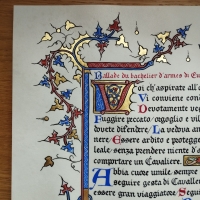 Ballade du bachelier d'armes di Eu
Voi ch'aspirate all'o
Vi conviene cond
Devotamente veg
Fuggire peccato, orgoglio e vil
dovete difendere/ La vedva an
ne/ Essere ardito e protegge
leale senza prendere niente d'a
comportare un Cavaliere.
Abbia cuore umile, sempre
seguire gesta di Cavalle
essere gran viaggiatore/ Se